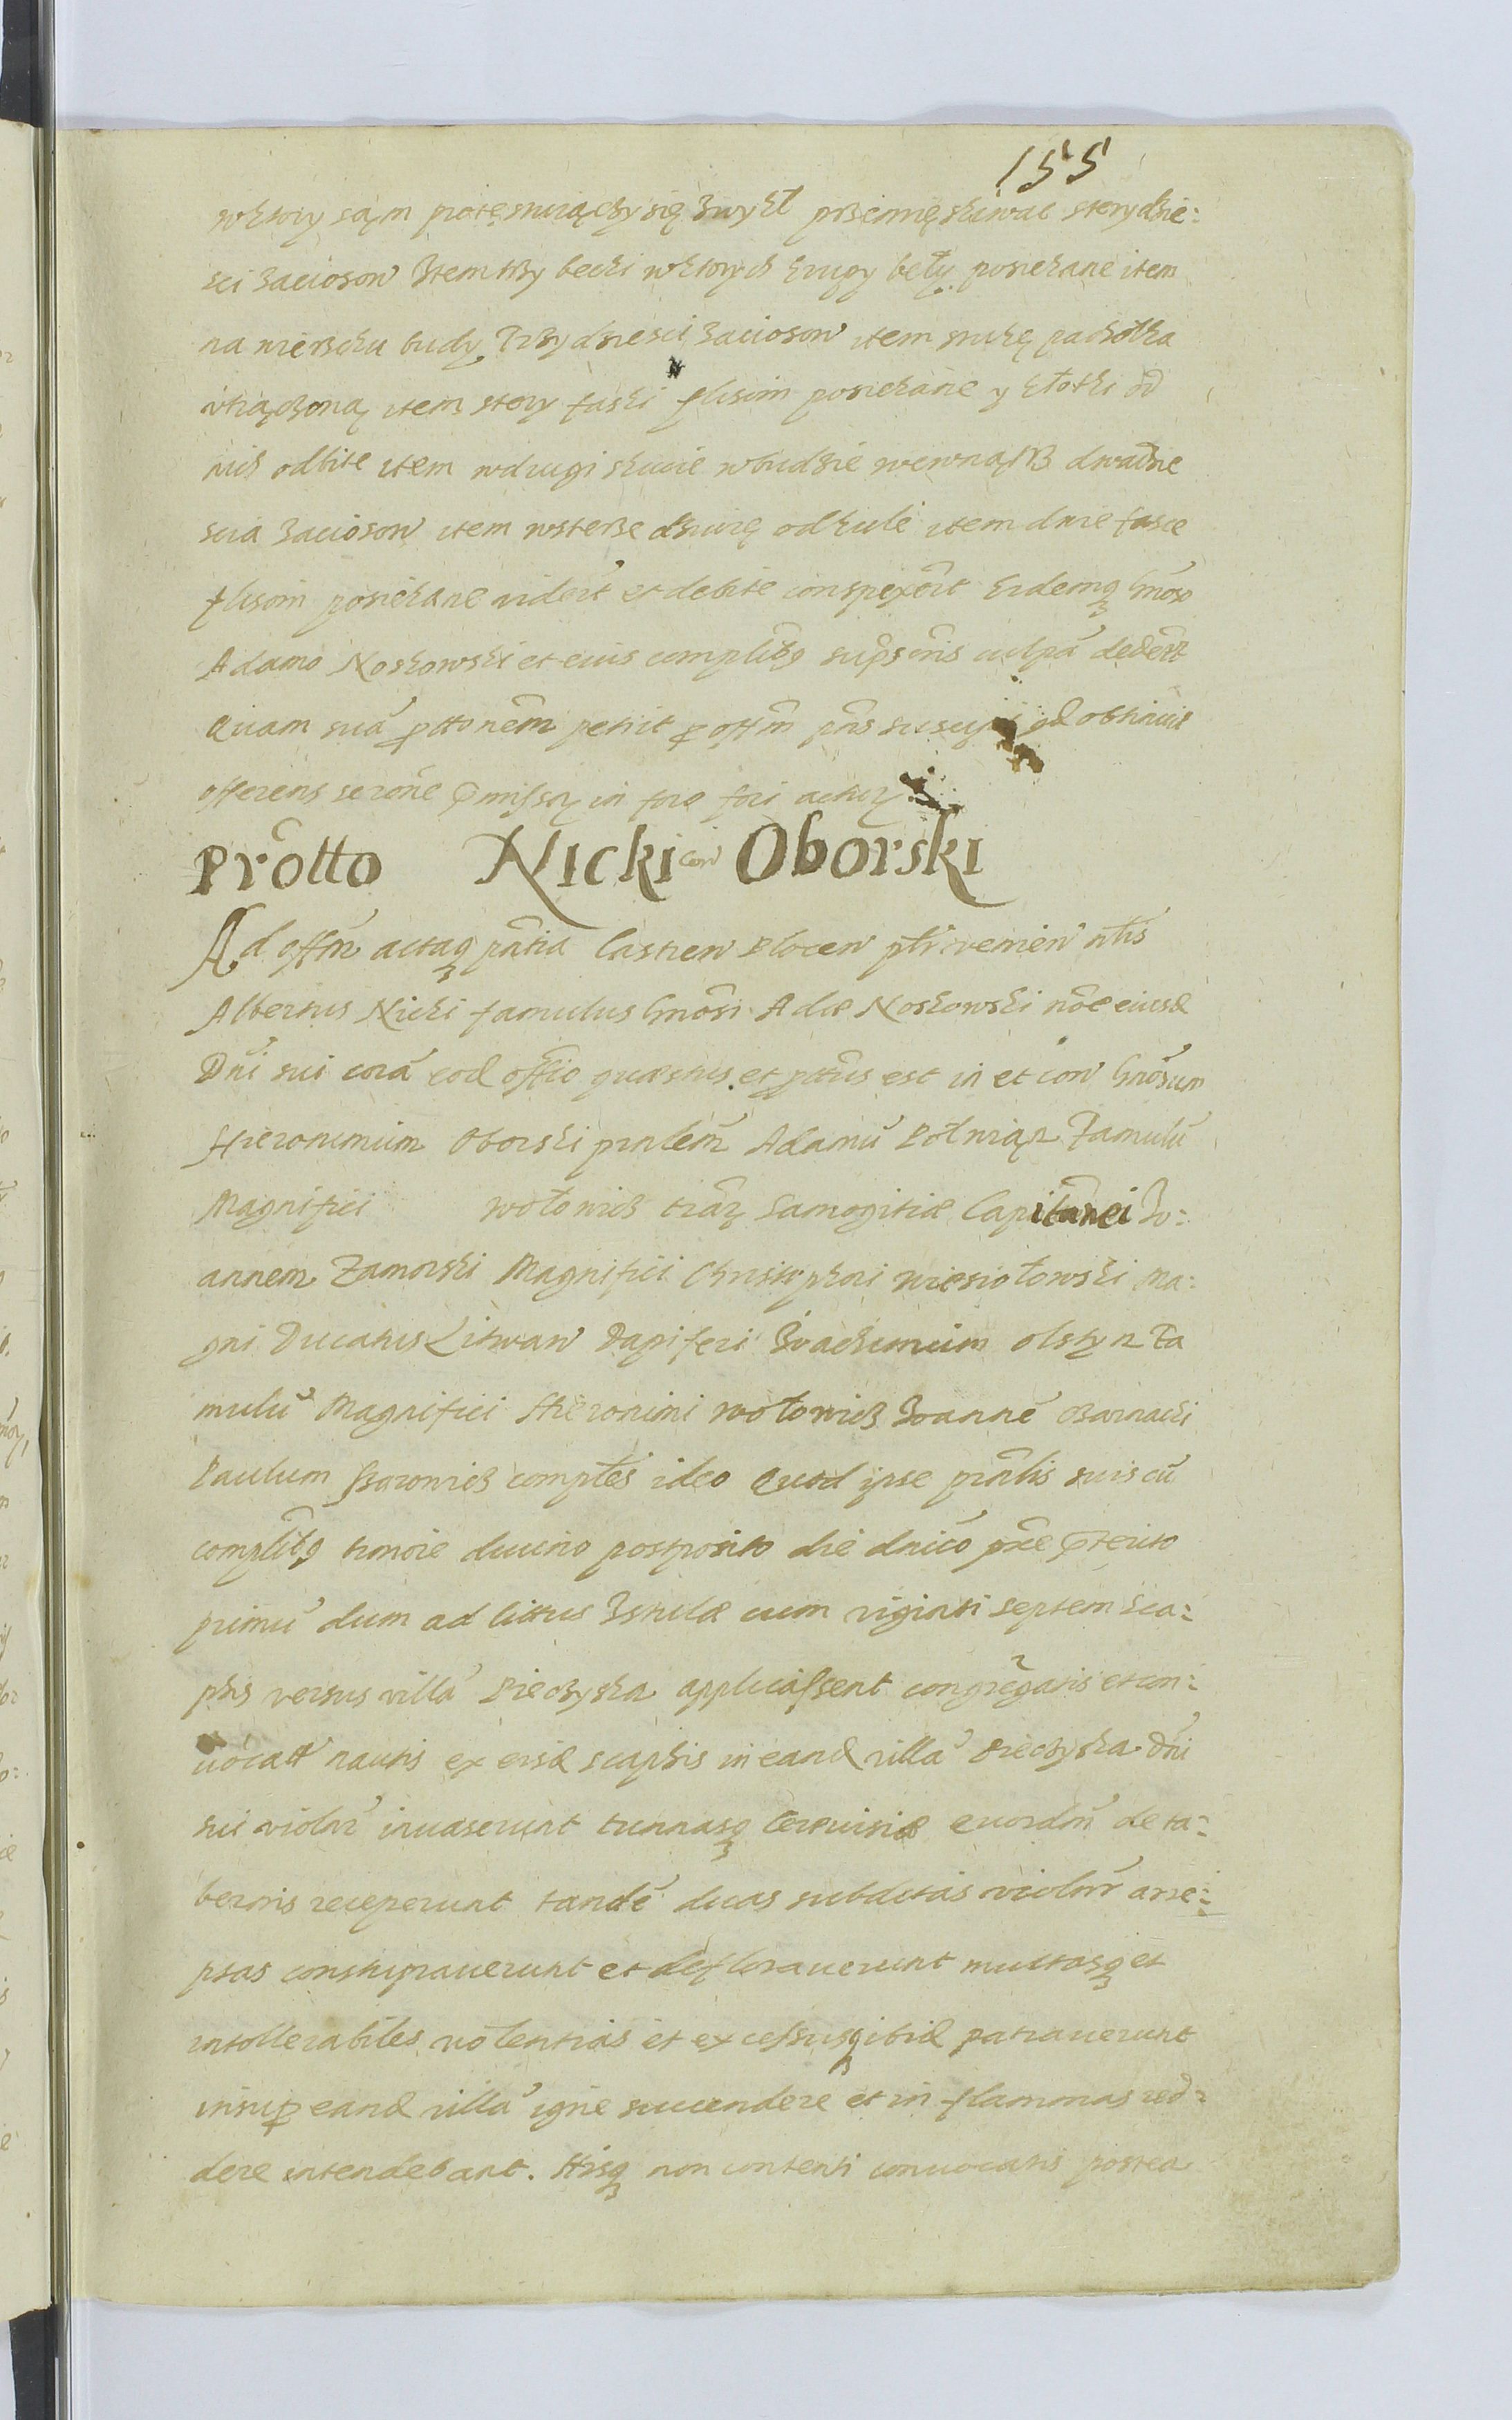 155
wktory sąm protęstuiączy się zwykł przemięskiwac sterydzie=
sci zacioson Item trzy becki wktorych krupy beły posiekane item
na wierzchu budy Trzydziesci zacioson item sztukę pachołka
vtrączoną item stery faski flisom posiekane y kłotki od
nich odbite item wdrugi skucie wbudzie wewnątrz dwadzie
scia zacioson item wsterze dziurę odkule item dwie fasce
flisom posiekane viderūt et debite conspexerūt Eidemq Gnoso
Adamo Noskowski et eius complibq supscris culpā dederūt
Quam suā pttonem petiit p offm pns suscipi qd obtinuit
offerens se rone pmissor in foro fori actur
Protto Nicki con Oborski
Ad offm actaq pntia Castren Plocen pti veniens nblis
Albertus Nicki famulus Gnosi Adae Noskowski noie eiusd
Dni sui corā eod offio quaestus et pttus est in et con Gnosum
Hieronimum Oborski prnlem Adamū Połwiąn Famulū
Magnifici wołowicz trar Samogitiae Capitanei Io=
annem Zamorski Magnifici Christophori wiesiołowski Ma=
gni Ducatus Litwan Dapiferi Ioachimum olstyn Fa
mulū Magnifici Hieronimi wołowicz Ioannē Czarnacki
Paulum complēs ideo Quod ipse prnlis suis cū
complibq timore diuino postposito die dnico pxe pterito
primū dum ad littus Istulae cum viginti septem sca=
phis versus villā Pieczyska applicassent congregatis et con=
uocatt nautis ex eisd scaphis in eand villā Pieczyska Dni
sui violntr inuaserunt tunnasq Cereuisiae euordm de ta=
bernis receperunt tandē duas subditas violntr arre=
ptas constuprauerunt et deflorauerunt multasq et
intollerabiles violentias et excessusq ibid patrauerunt
insup eand villā igne succendere et in flammas red=
dere intendebant. Hisq non contenti conuocatis postea